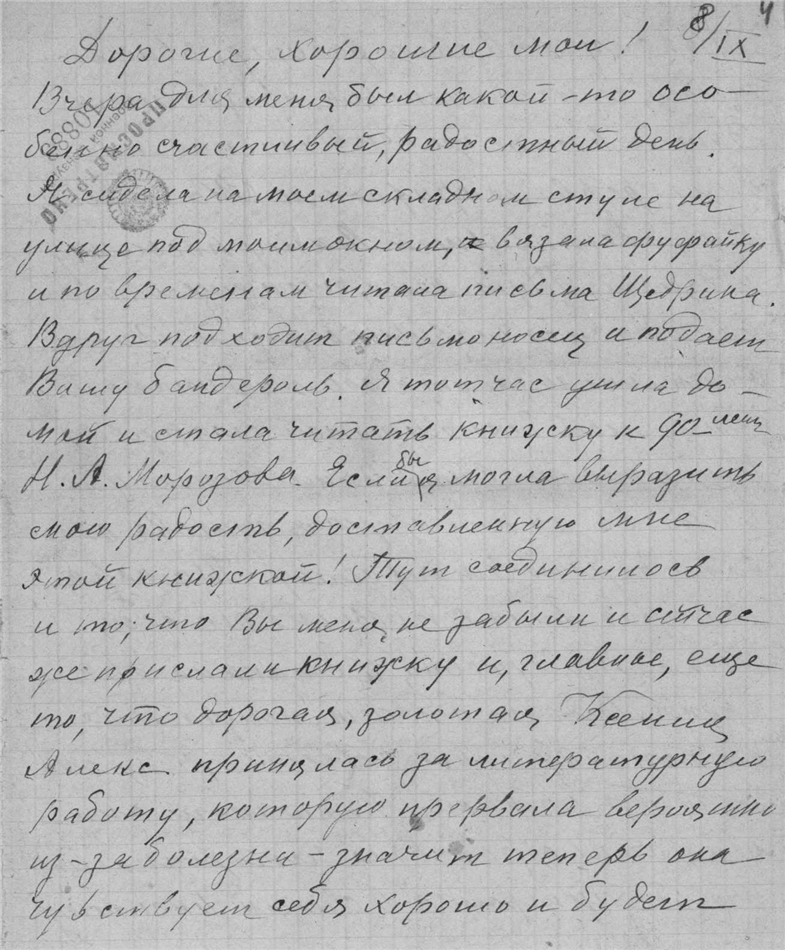 4
8/IX
Дорогие, хорошие мои!
Вчера для меня был какой-то осо-
бенно счастливый, радостный день.
Я сидела на моем складном стуле на
улице под моим окном, вязала фуфайку
и по временам читала письма Щедрина.
Вдруг подходит письмоносец и подает
Вашу бандероль. Я тотчас ушла до-
мой и стала читать книжку к 90-лет.
Н. А. Морозова. Если бы я могла выразить
мою радость, доставленную мне
этой книжкой! Тут соединилось
и то, что Вы меня не забыли и сейчас
же прислали книжку и, главное, еще
то, что дорогая, золотая Ксения
Алекс. принялась за литературную
работу, которую прервала вероятно
из-за болезни - значит теперь она
чувствует себя хорошо и будет
ПРОСМОТРЕНО
10883